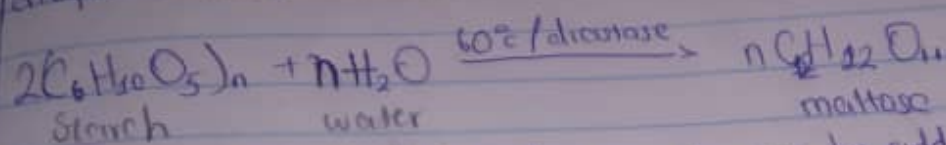 2(C₆H₁₀O₅)n + nH₂O 60°c/diastase → nC₁₂H₂₂O₁₁
Starch water maltose